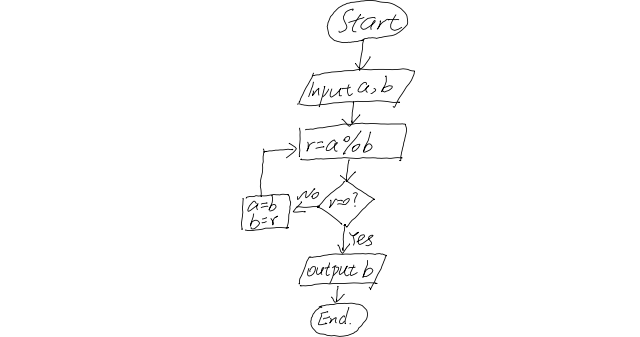 Start
Input a, b
r=a%b
r=0?
No
a=b
b=r
Yes
output b
End.